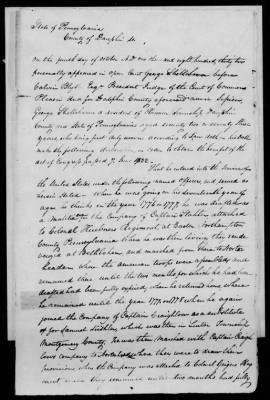 State of Pennsylvania
County of Dauphin ss.
On the fourth day of october A.D. one thousand eight hundred thirty two
personally appeared in open Court George before
Calvin Blyt Esqr. President Judge of the Court of Common
Pleas in and for Dauphin County aforesaid now in Session,
George a resident of Township Dauphin
County and State of Pennsylvania aged seventy two or seventy three
years who being first duly sworn according to Law doth on his oath
make the following declaration in order to obtain the benefit of the
act of Congress passed 7 June 1832.
That he entered into the service of
the United States under the following named officers and served as
herein stated. When he was going on his seventeenth year of
age he thinks in the year 1776 or 1777, he was drafted as
a militia man in the Company of Captain attached
to Colonel Regiment at Easton Northampton
County Pennsylvania. When he was then living then
at Bethlehem, and marched from there to
when the american troops were already and
remained there until the two months for which he had been
drafted had been fully expired, when he returned home where
he remained until the year 1777 or 1778 when he again
joined the Company of Captain Craig as a substitute
of for Samuel which was then in Township
Montgomery County. He was then Marched with Captain Craig
Company to when they were to draw their
provisions when the Company was attached to Colonel
ment where they remained until two months had fully